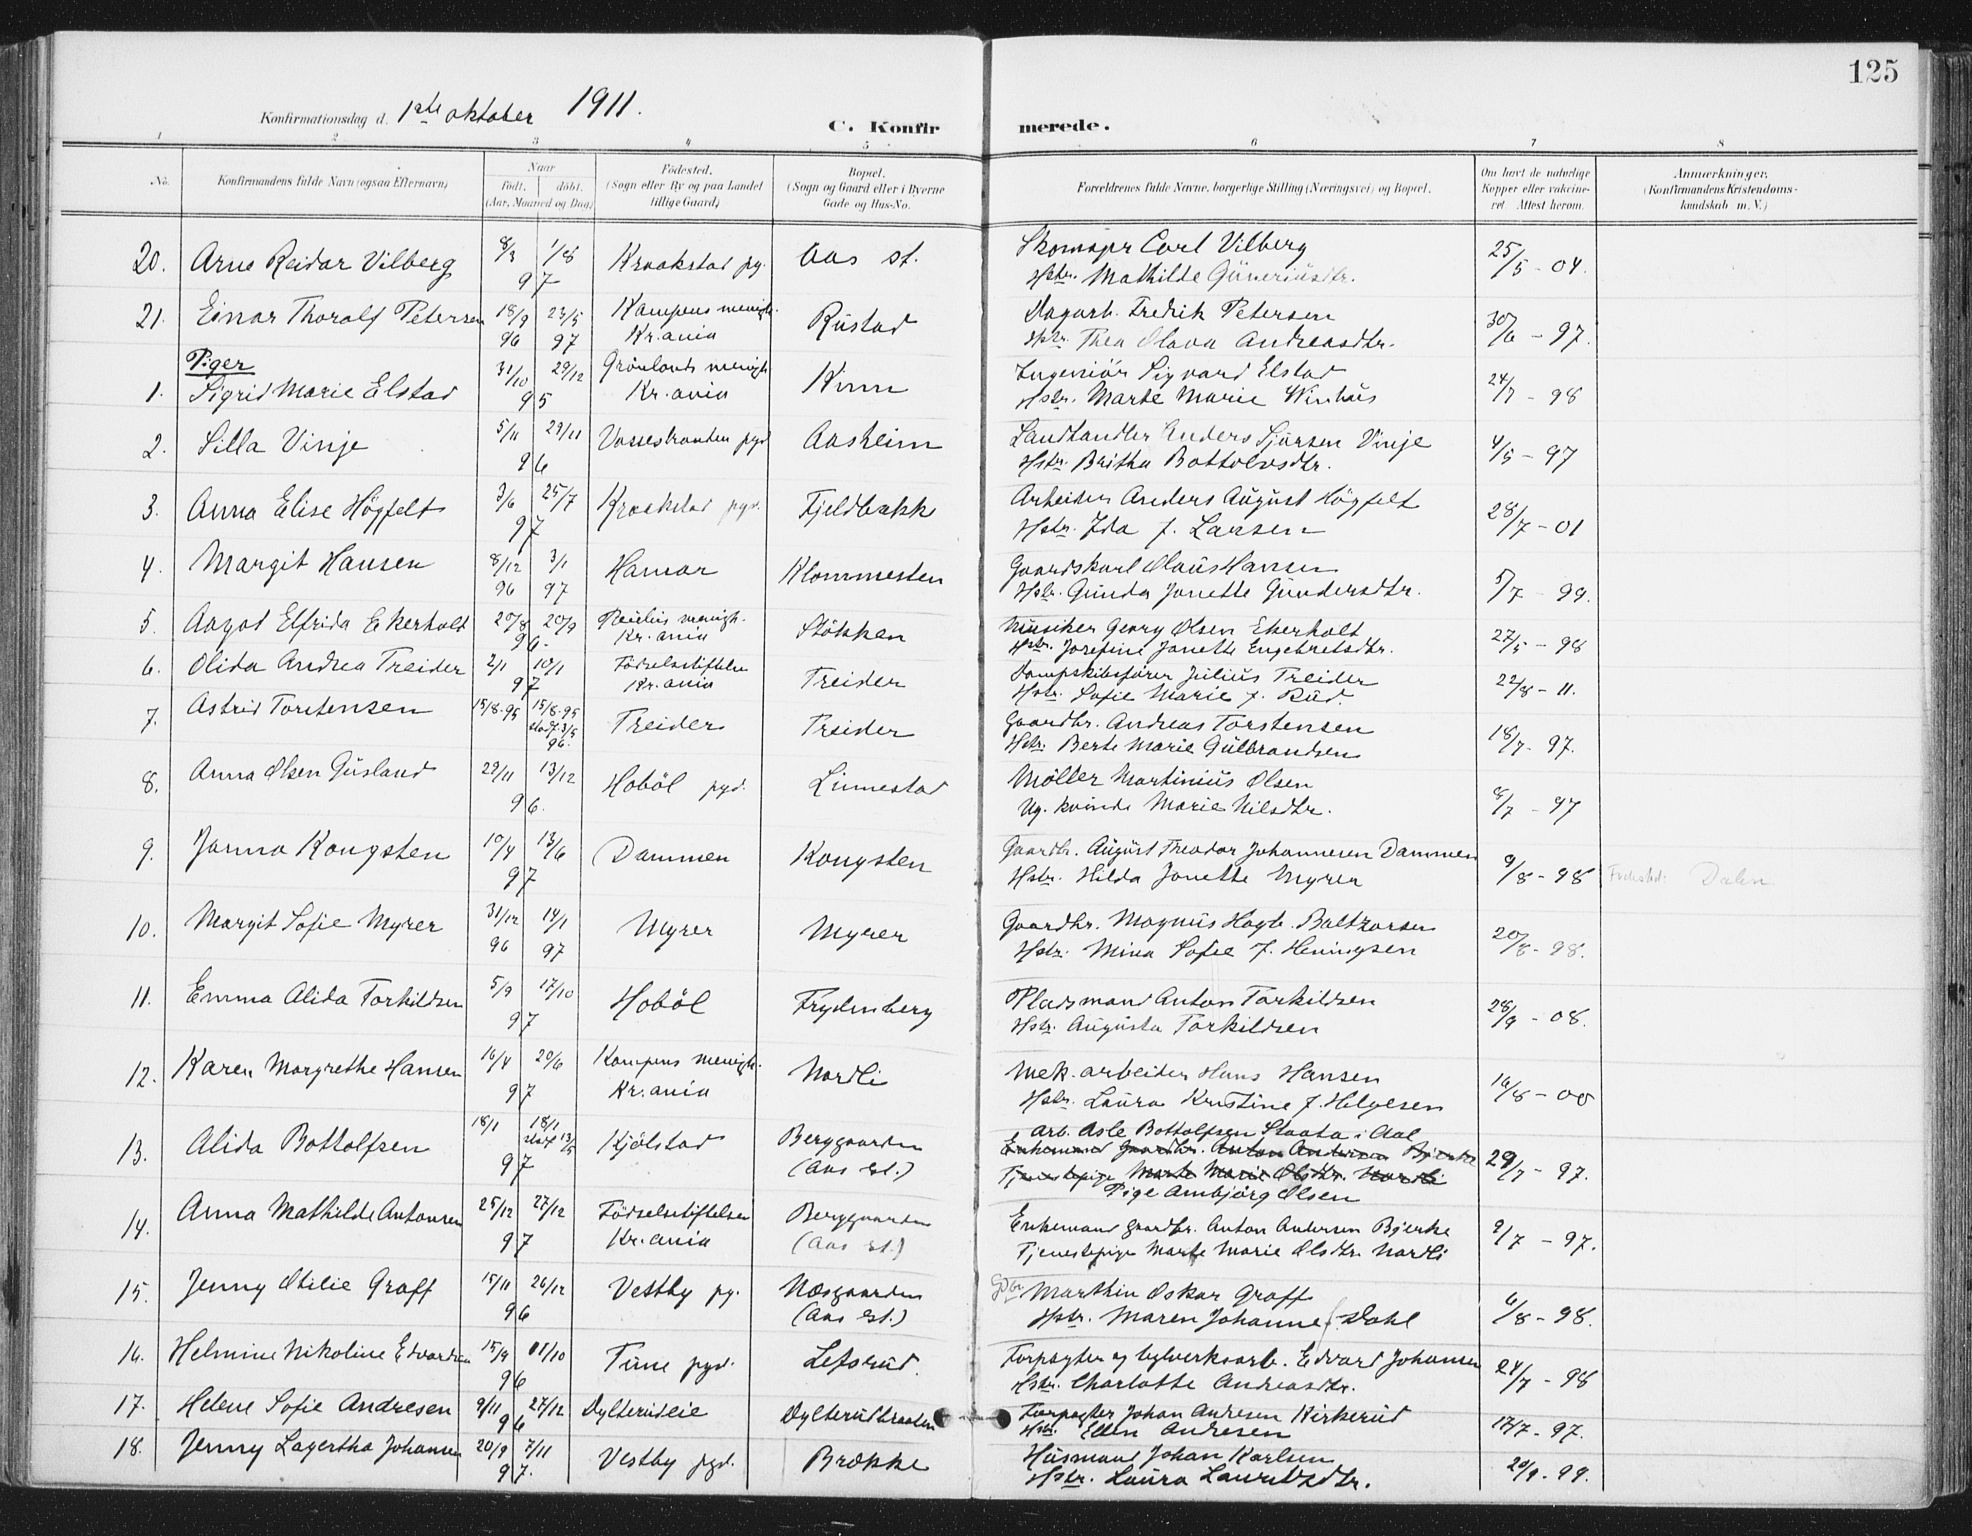 125
Konfirmationsdag d. 1ste oktober 1911.
C. Konfirmerede.
1 2 3 4 5 6 7 8
No. Konfirmandens fulde Navn (ogsaa Efternavn) Naar født. døbt. (Aar, Maaned og Dag) Fødested. (Sogn eller By og paa Landet tillige Gaard) Bopæl. (Sogn og Gaard eller i Byerne Gade og Hus-No. Forældrenes fulde Navne, borgerlige Stilling (Næringsvei) og Bopæl. Om havt de naturlige Kopper eller vaccineret. Attest herom. Anmærkninger. (Konfirmandens Kristendomskundskab m. V.)
20. Arne Reidar Vilberg 8/3 1/8 97 Kraakstad pg. Aas st. Skomager Carl Vilberg 25/5 - 04.
Hstr. Mathilde Güneriüsdtr.
21. Einar Thoralf Petersen 18/9 96 23/5 97 Kampens menigh. Kr.ania Rüstad Dagarb. Fredrik Petersen 30/6 - 97.
Hstr. Thea Olava Andreasdtr.
Piger
1. Sigrid Marie Elstad 31/10 29/12 95 Grønlands menigh Kr.ania Kinn Ingeniør Sigvard Elstad 24/7 - 98
Hstr. Marte Marie Winhüs
2. Silla Vinje 5/11 29/11 96 Vossestranden pgd Aasheim Landhandler Anders Sjürsen Vinje 4/5 - 97
Hstr. Britha Bottolvsdtr.
3. Anna Elise Högfelt 3/6 25/7 97 Kraakstad pgd. Fjeldbakk Arbeider Anders Augüst Högfelt 28/7 - 01
Hstr. Ida f. Larsen
4. Margit Hansen 8/12 96 3/1 97 Hamar Klommesten Gaardskarl Olaüs Hansen 5/7 - 99.
Hstr. Günda Jonette Gündersdtr.
5. Aagot Elfrida Ekerholt 20/8 20/9 96. Paulüs menigh. Kr.ania Stökken Müsiker Georg Olsen Ekerholt 27/5 - 98
Hstr. Josefine Jonette Engebretsdtr.
6. Olida Andrea Treider 2/1 10/1 97 Födselsstiftelse Kr.ania Treider Dampskibsfører Jülius Treider 22/8 - 11.
Hstr. Sofie Marie f. Rüd.
7. Astrid Torstensen 15/8-95 15/8-95 stadf. 3/5 96. Treider Treider Gaardbr. Andreas Torstensen 18/7 - 97.
Hstr. Berte Marie Gülbrandsen
8. Anna Olsen Güsland 29/11 13/12 96. Hoböl pgd. Linnestad Möller Martiniüs Olsen 8/7 - 97
Ug. kvinde Marie Nilsdtr.
9. Janna Kongsten 10/4 13/6 97 Dammen Kongsten Gaardbr. Augüst Theodor Johannesen Dammen 9/8 - 98 Fødested: Dalen
Hstr. Hilda Jonette Myrer
10. Margit Sofie Myrer 31/12 96 14/1 97 Myrer Myrer Gaardbr. Magnüs Hagb. Baltzarsen 20/8 - 98.
Hstr. Mina Sofie f. Heningsen
11. Emma Alida Torkildsen 5/9 17/10 97 Hoböl Frydenberg Pladsmand Anton Torkildsen 28/9 - 08.
Hstr. Augüsta Torkildsen
12. Karen Margrethe Hansen 16/4 20/6 97 Kampens menigh. Kr.ania Nordli Mek. arbeider Hans Hansen 16/8 - 00
Hstr. Laüra Kristine f. Helgesen
13. Alida Bottolfsen 18/1 18/1 stadf 13/5 97 Kjølstad Berggaarden (Aas st.) Arb. Asle Bottolfsen Staata i Aal 29/7 - 97.
Enkemand Gaardbr. Anton Andersen Bjerke
Tjenestepige Marte Marie Olsdtr. Nordli
Pige Ambjørg Olsen
14. Anna Mathilde Antonsen 25/12 27/12 97 Födselsstiftelsen Kr.ania Berggaarden (Aas st.) Enkemand gaardbr. Anton Andersen Bjerke 9/7 - 97.
Tjenestepige Marte Marie Olsdtr. Nordli
15. Jenny Otilie Graff 15/11 26/12 96 Vestby pg. Næsgaarden (Aas st.) Gdbr. Marthin Oskar Graff 6/8 - 98.
Hstr. Maren Johanne f. Dahl
16. Helmine Nikoline Edvardsen 15/9 11/10 96 Tüne pgd. Lefsrüd. Forpagter og teglverksarb. Edvard Johansen 24/7 - 98
Hstr. Charlotte Andreasdtr.
17. Helene Sofie Andresen 9/11 27/12 96 Dylterüdeie Dylterüdbraaten Forpagter Johan Andresen Kirkerüd 17/7 - 97.
Hstr. Ellen Andresen
18. Jenny Lagertha Johansen 20/9 7/11 97. Vestby pgd. Brække Hüsmand Johan Karlsen 20/9 - 99.
Hstr. Laüra Lauritzdtr.